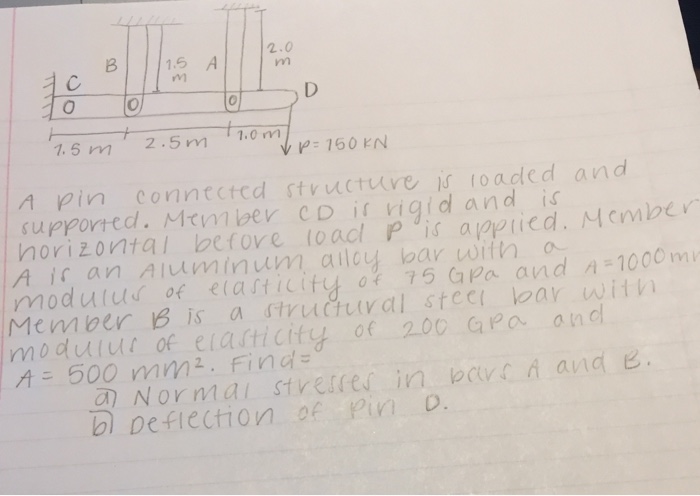 2.0
m
B
1.5
m
A
C
D
1.5 m
2.5m
1.0m
P= 150 KN
A pin connected structure is loaded and
supported. Member CD is rigid and is
horizontal before load P is applied. Member
A is an Aluminum alloy bar with a
modulus of elasticity of 75 GPa and A=1000m
Member B is a structural steel bar with
modulus of elasticity of 200 GPa and
A= 500 mm². Find=
a) Normal stresses in bars A and B.
b) Deflection of pin D.